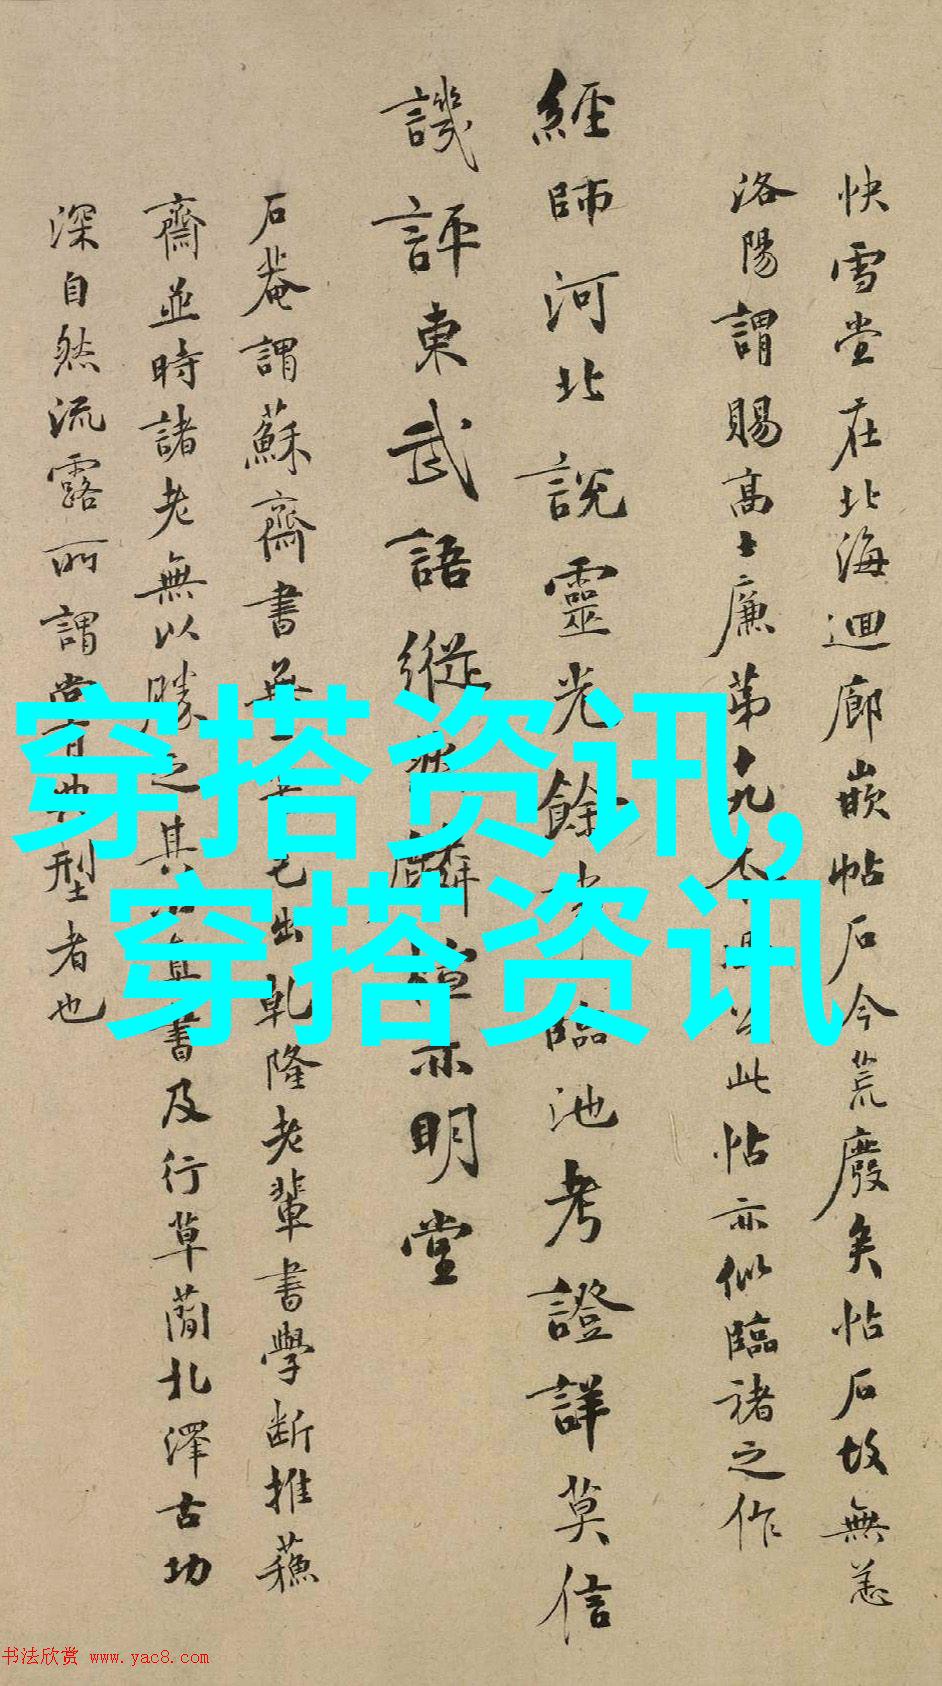 快雪堂在北海迴廊嵌帖石今荒廢矣帖石故無恙
洛陽謂賜高士廉第十九 此帖亦似臨褚之作
經師河北說靈光餘事臨池考證詳莫信
譏評東武語縱 麟 亦明堂
石菴謂蘇齋書無一 出乾隆老輩書學斷推蘓
齋並時諸老無以勝之其 真書及行草蘭北澤古功
深自然流露所謂 型者也
穿搭资讯,
穿搭资讯
书法欣赏 www.yac8.com